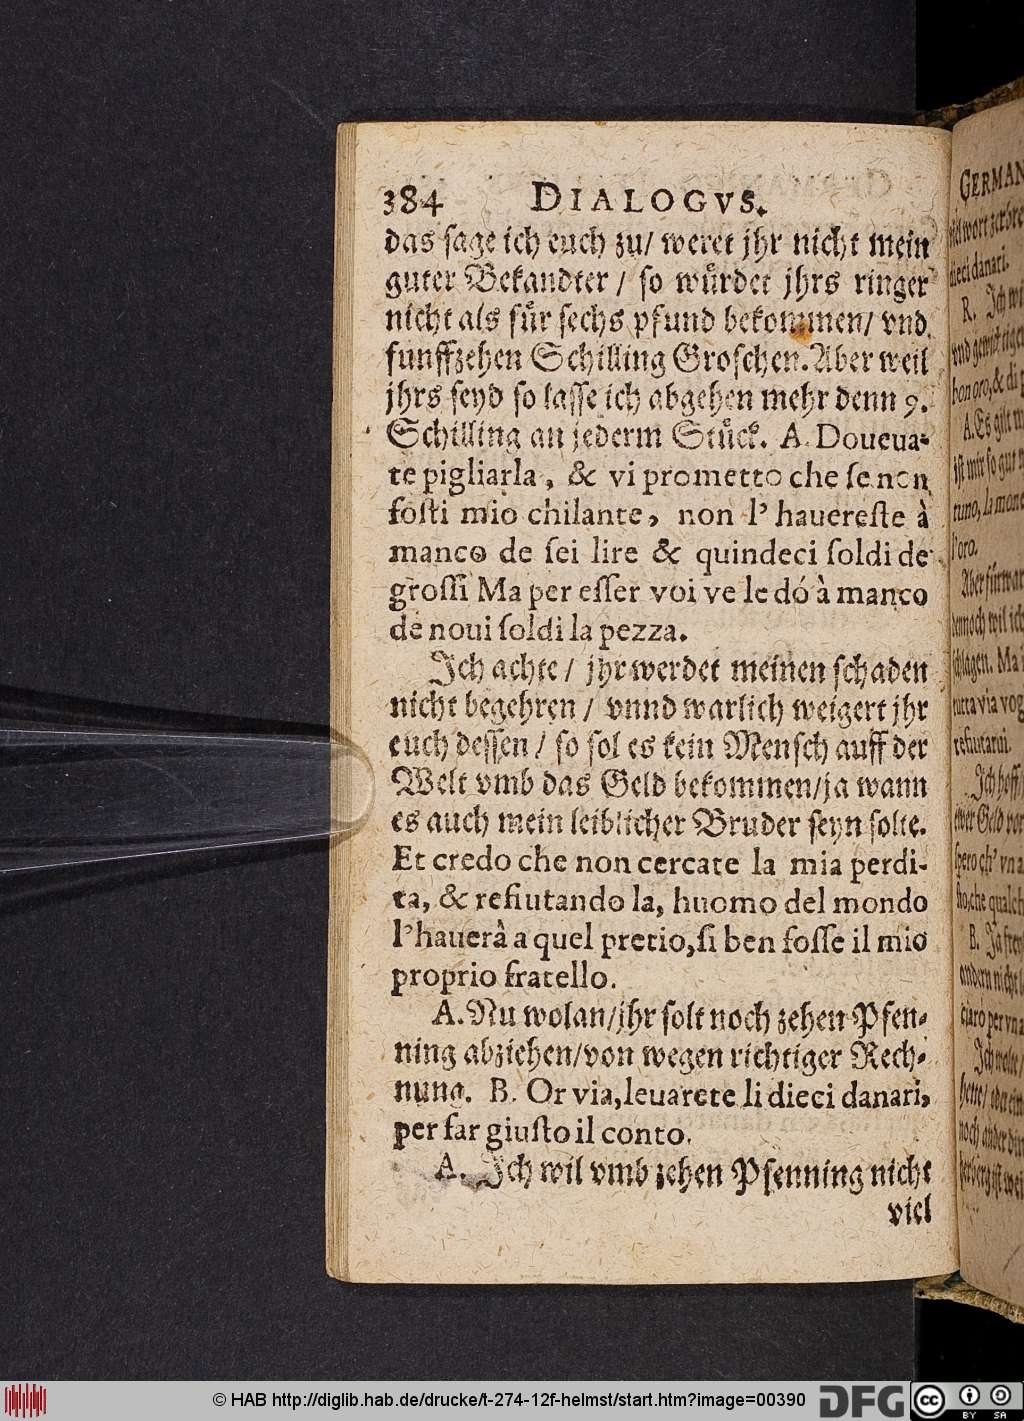 384 DIALOGVS.
das sage ich euch zu/ weret jhr nicht mein
guter Bekandter / so wuͤrdet jhrs ringer
nicht als fuͤr sechs pfund bekommen/ vnd
funffzehen Schilling Groschen. Aber weil
jhrs seyd so lasse ich abgehen mehr denn 9.
Schilling an jederm Stuͤck. A. Doueua-
te pigliarla, & vi prometto che se non
fosti mio chilante, non l' hauereste à
manco de sei lire & quindeci soldi de
grossi Ma per esser voi ve le dó à manco
de noui soldi la pezza.
Ich achte / jhr werdet meinen schaden
nicht begehren / vnnd warlich weigert jhr
euch dessen / so sol es kein Mensch auff der
Welt vmb das Geld bekommen/ja wann
es auch mein leiblicher Bruder seyn solte.
Et credo che non cercate la mia perdi-
ta, & refiutando la, huomo del mondo
l'hauerà a quel pretio, si ben fosse il mio
proprio fratello.
A. Nu wolan/jhr solt noch zehen Pfen-
ning abziehen/von wegen richtiger Rech-
nung. B. Or via, leuarete li dieci danari,
per far giusto il conto.
A. Ich wil vmb zehen Pfenning nicht
viel
GERMAN
dieci danari.
R. Ich
bon oro, & di
A. Es gilt
ist mir so gut
l'oro.
dennoch wil ich
schlagen. Ma
tutta via vog
refiutarui.
Ich hoff
ewer Geld
spero ch' vn a
che qualch
andern nicht
ciaro per vn a
noch ander
© HAB http://diglib.hab.de/drucke/t-274-12f-helmst/start.htm?image=00390
DFG
cc BY SA